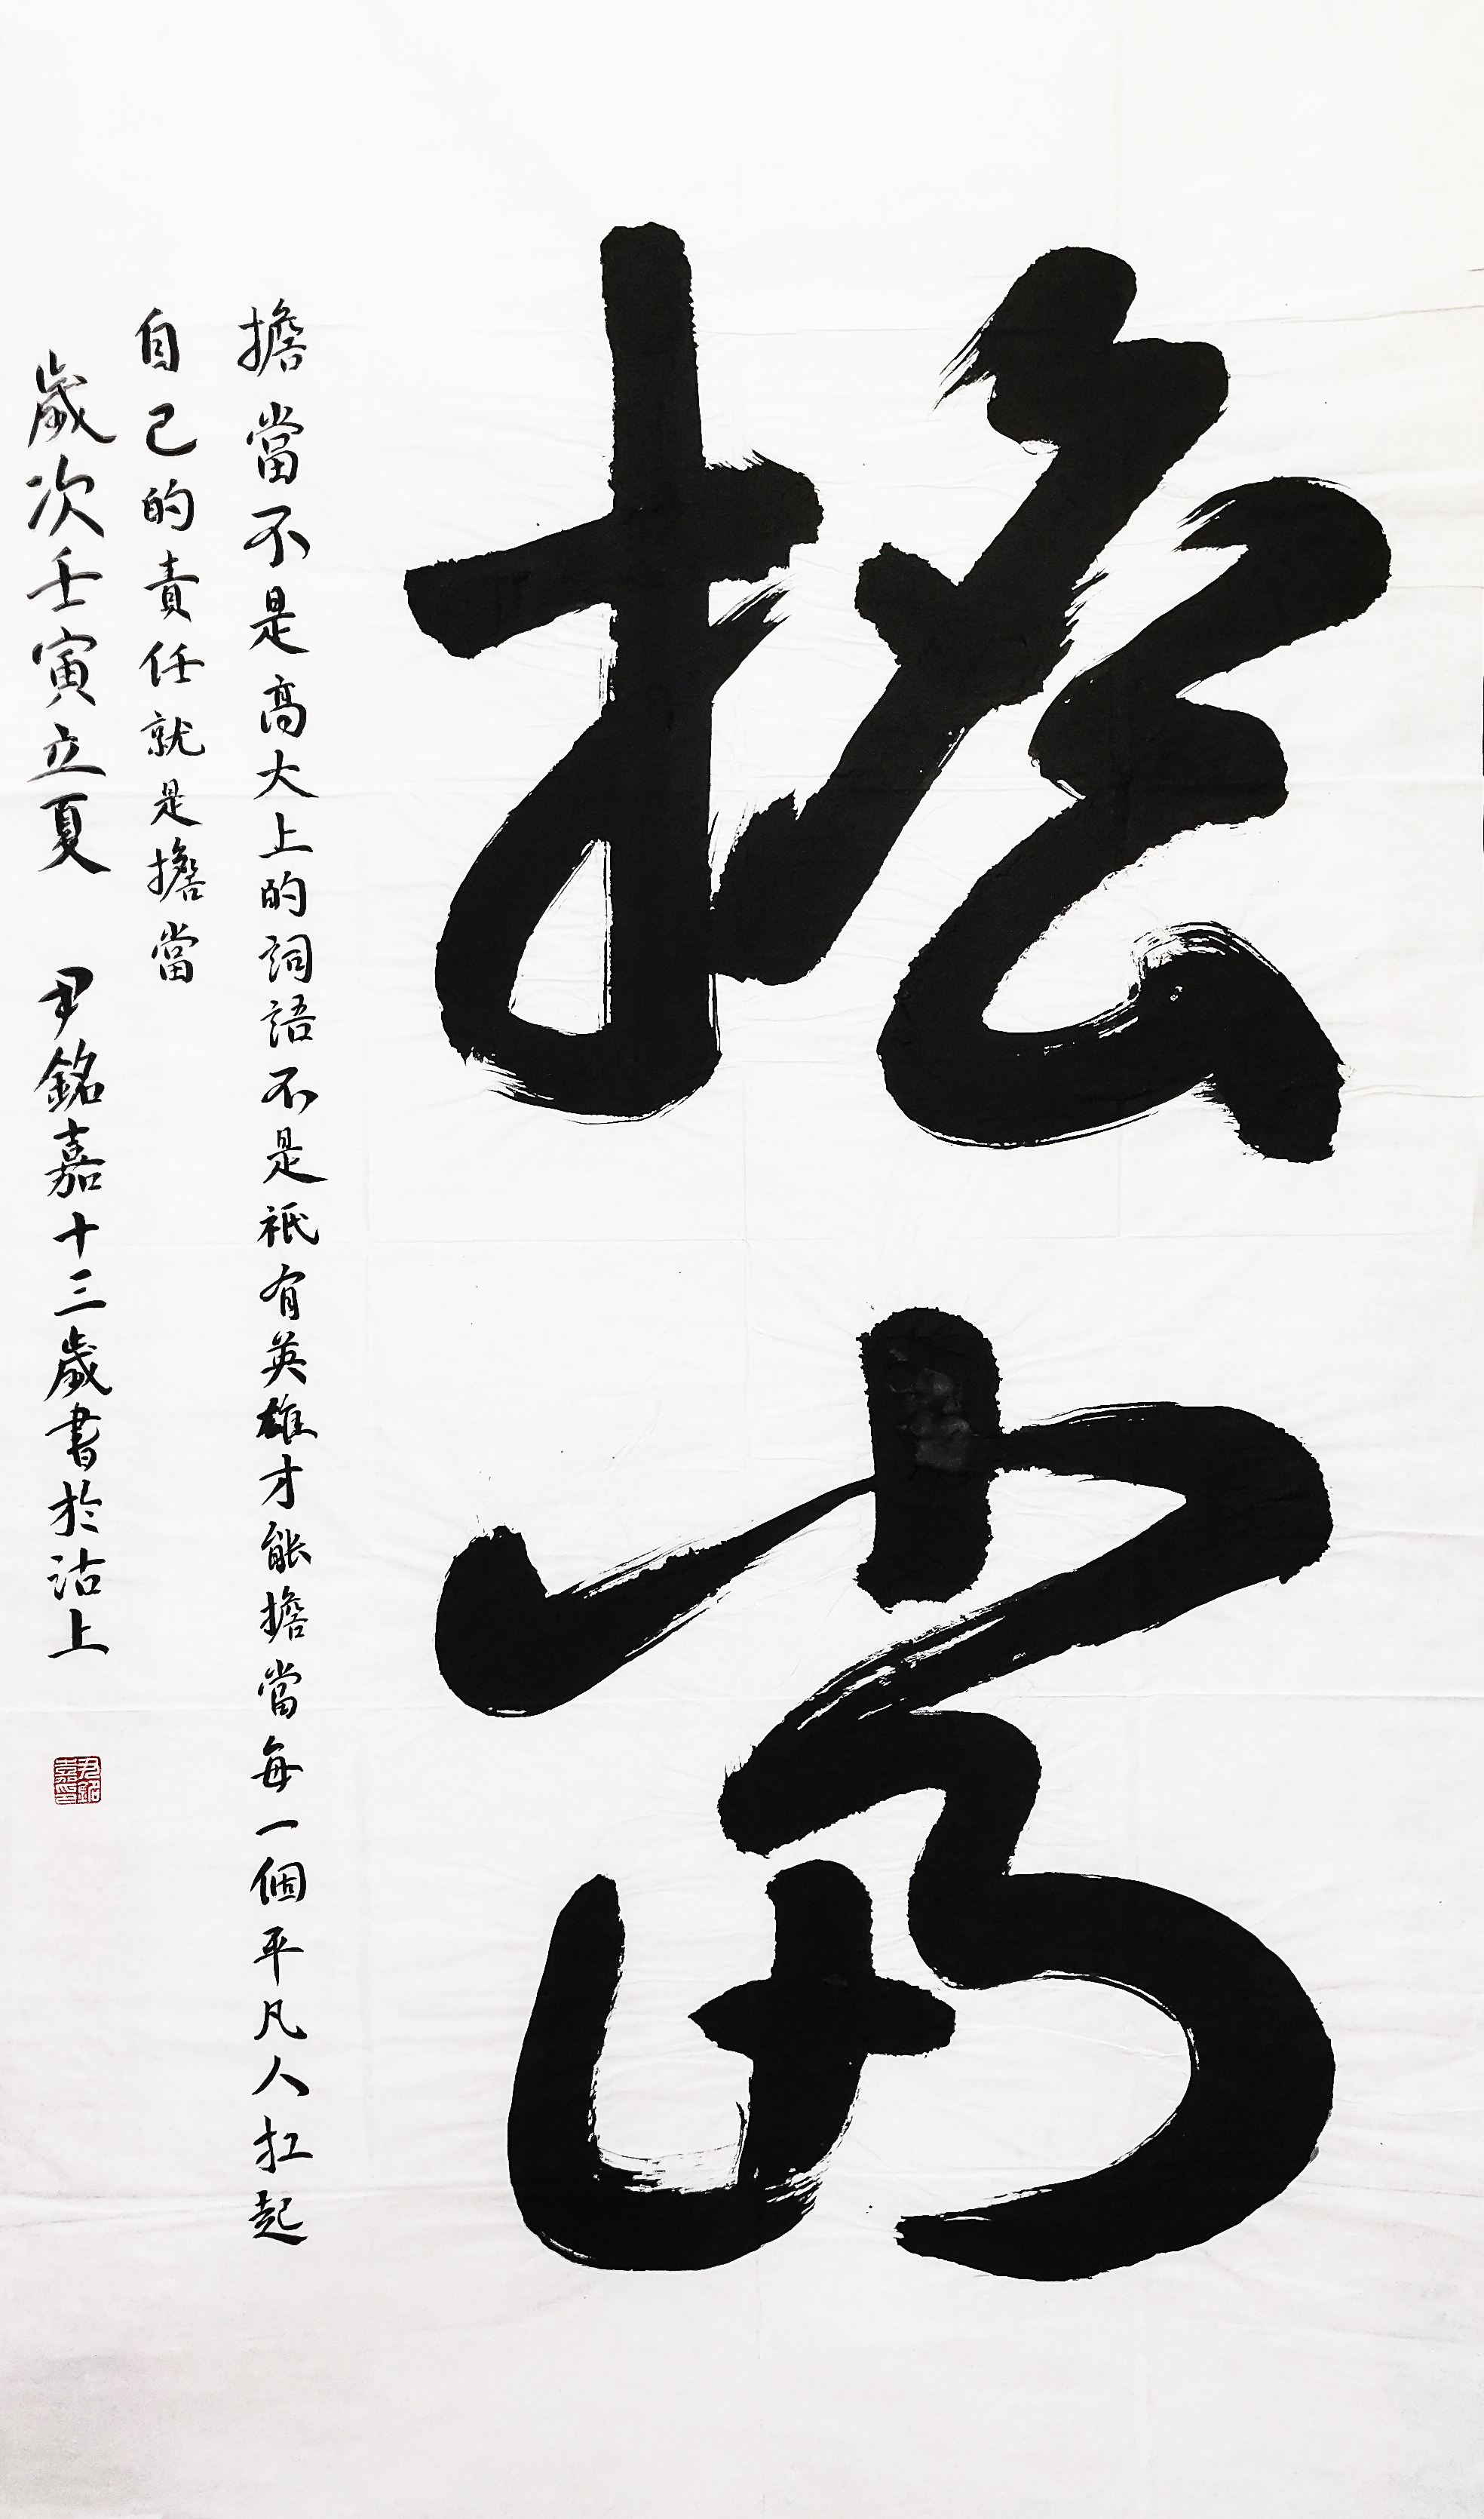 擔當
擔當不是高大上的詞語不是祇有英雄才能擔當每一個平凡人扛起
自己的責任就是擔當
歲次壬寅立夏 尹銘嘉十三歲書於沽上
尹銘嘉印